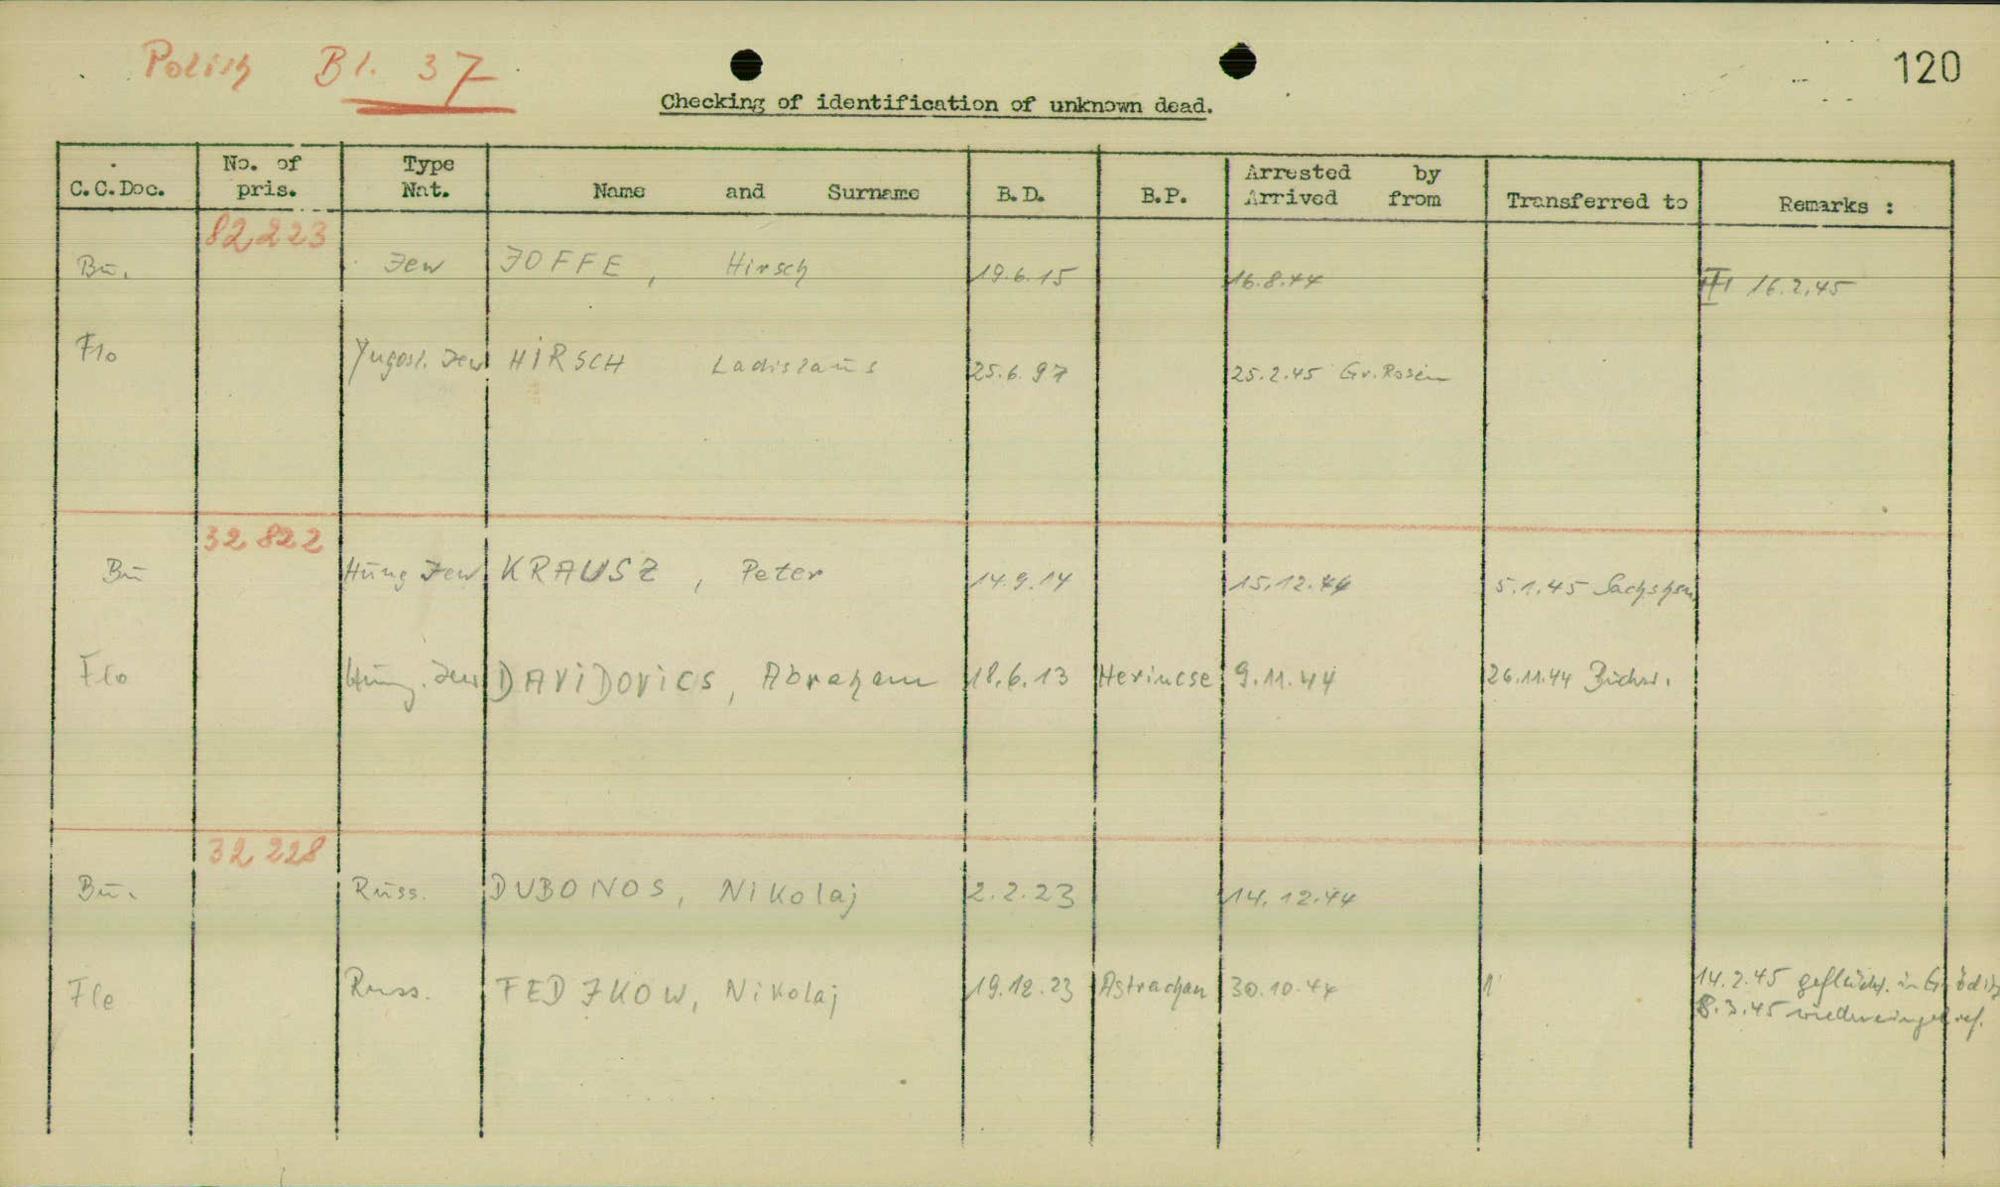 Polish Bl. 37
120
Checking of identification of unknown dead.
C.C.Doc. No. of pris. Type Nat. Name and Surname B.D. B.P. Arrested by Arrived from Transferred to Remarks :
82223
Bū. Jew JOFFE, Hirsch 19.6.15 16.8.44 16.2.45
Flo Yugosl. Jew HIRSCH Ladislaūs 25.6.97 25.2.45 Gr.Rosen
32822
Bū Hūng Jew KRAUSZ, Peter 14.9.14 15.12.44 5.1.45 Sachshsn
Flo Hūng. Jew DAVIDOVICS, Abraham 18.6.13 Herincse 9.11.44 26.11.44 Būchw.
32228
Bū. Rūss. DUBONOS, Nikolaj 2.2.23 14.12.44
Flo Russ. FEDJKOW, Nikolaj 19.12.23 Astrachan 30.10.44 14.2.45 geflücht. in Gröditz
8.3.45 wiedereingelief.